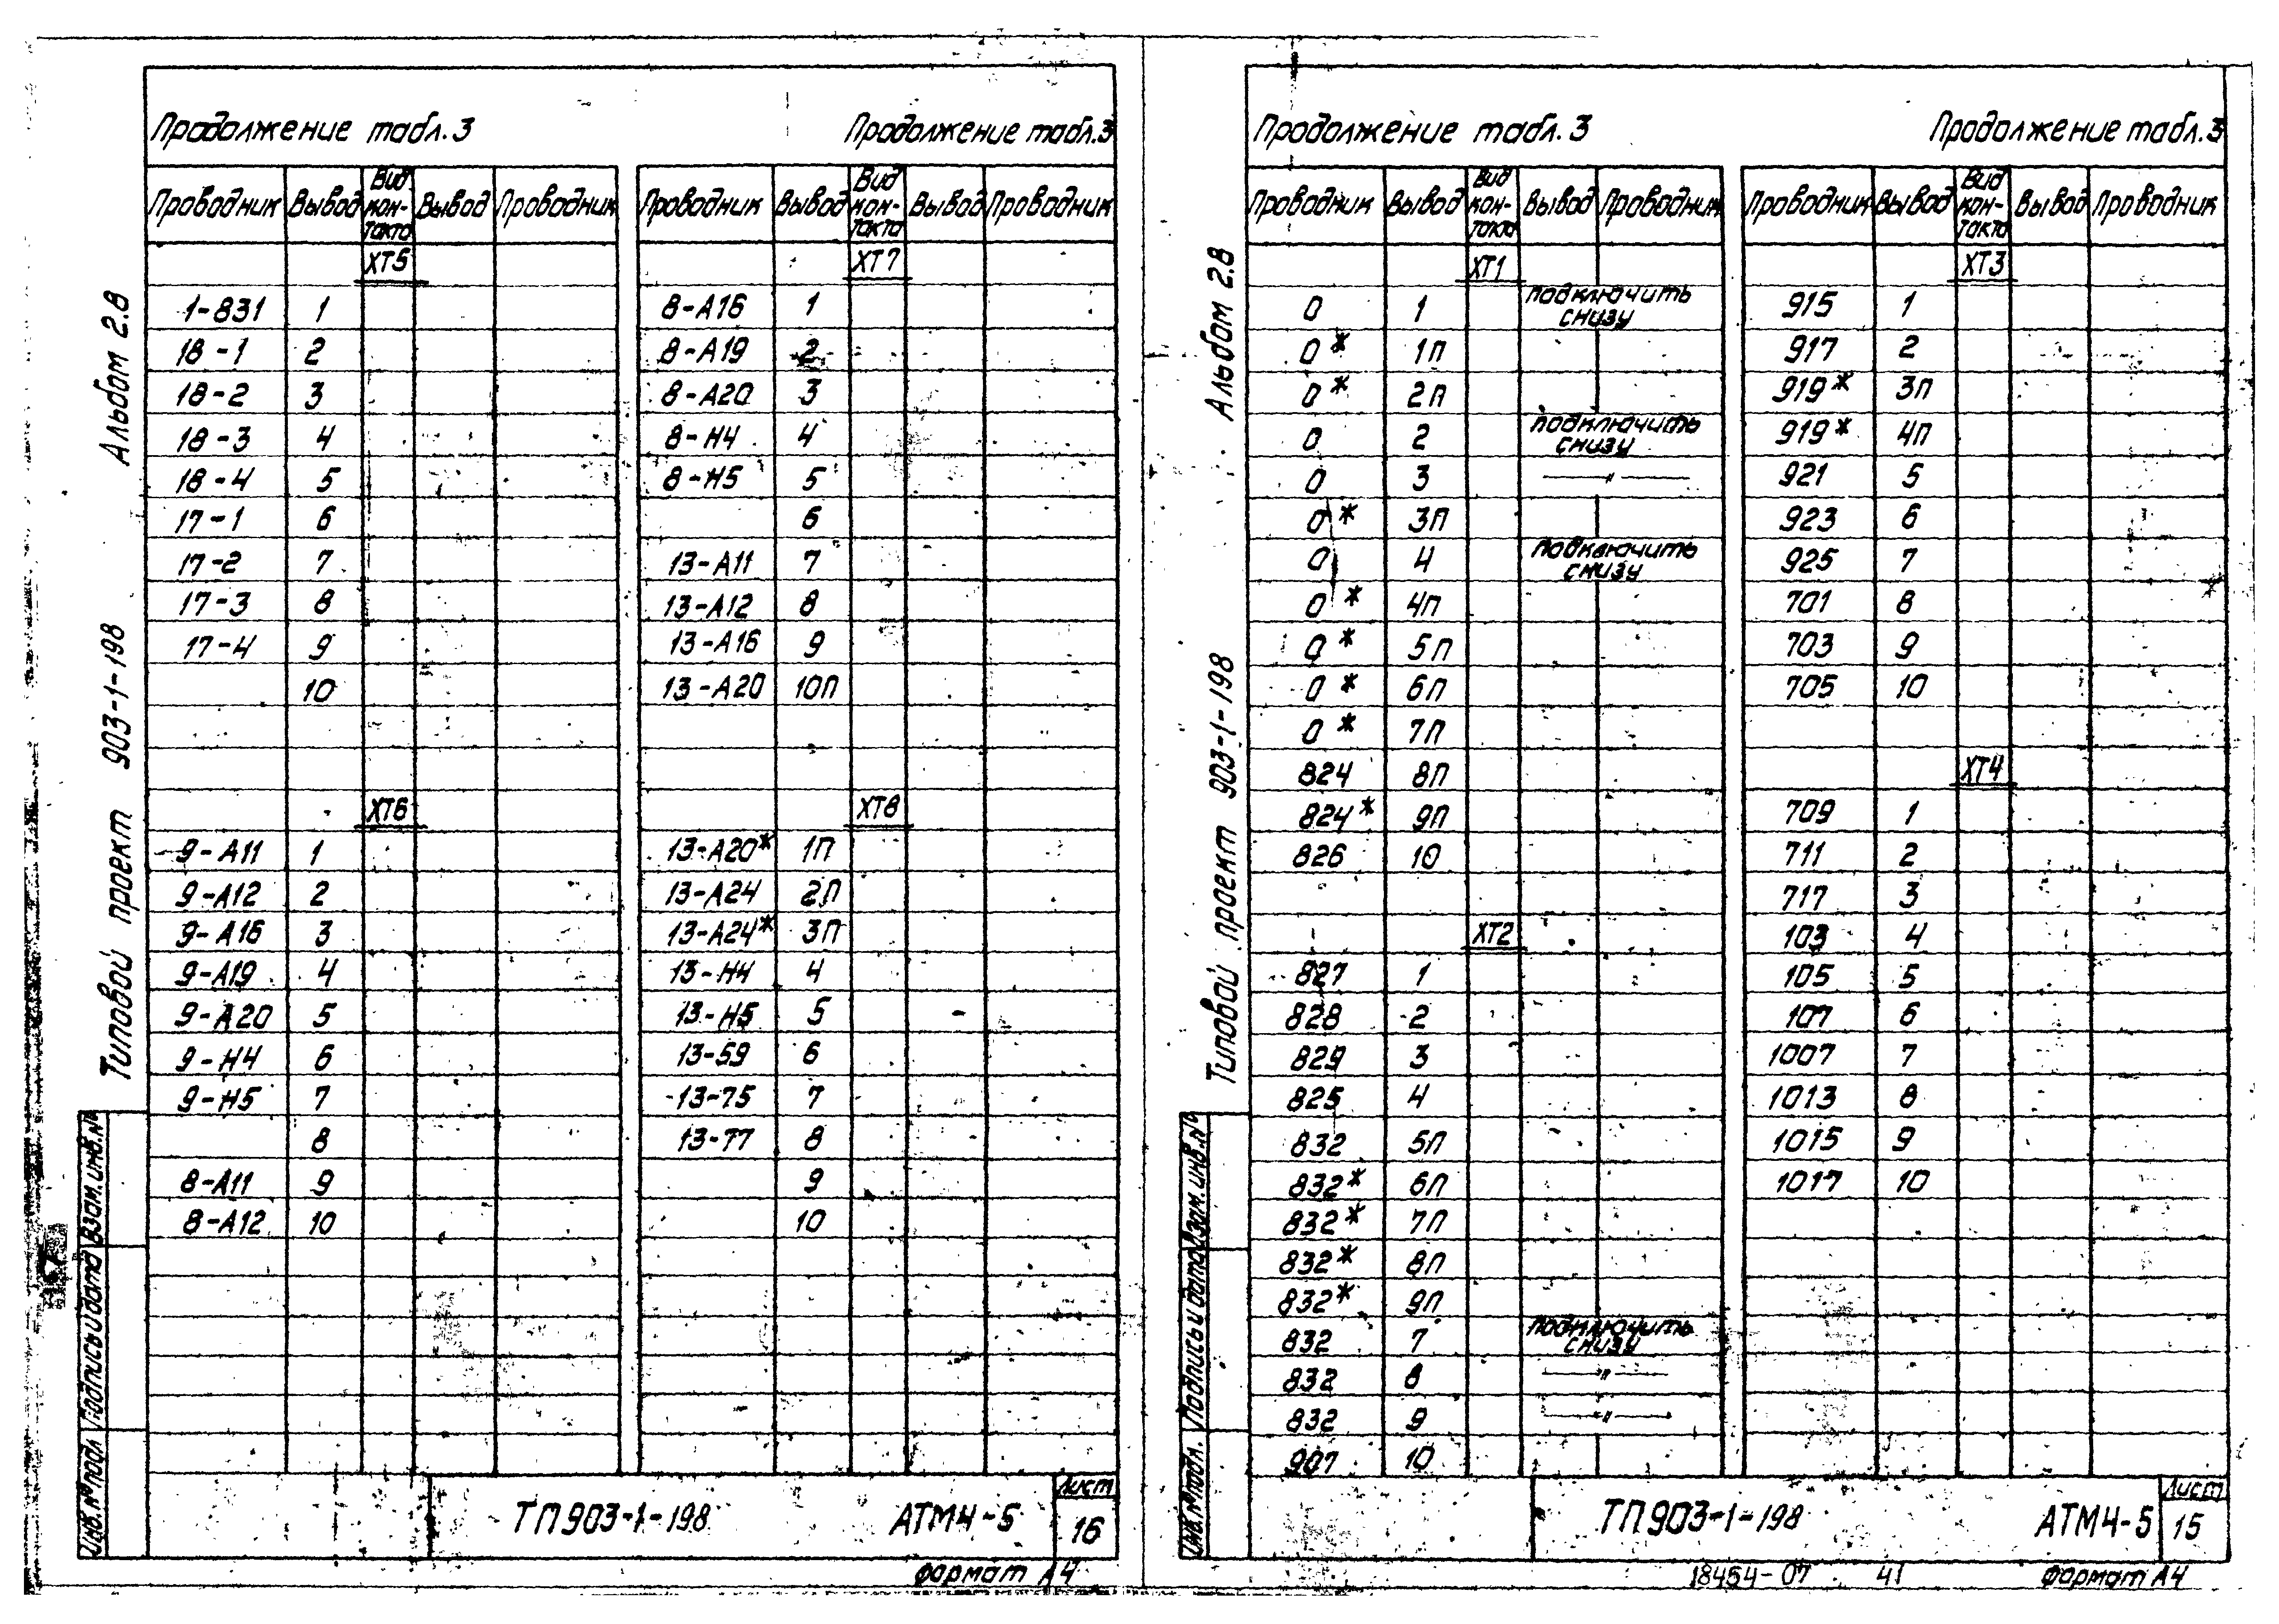 Продолжение табл.3 Продолжение табл.3
Проводник Вывод Вид кон-такта Вывод Проводник
ХТ5
1-831 1
18-1 2
18-2 3
18-3 4
18-4 5
17-1 6
17-2 7
17-3 8
17-4 9
10
ХТ6
9-А11 1
9-А12 2
9-А16 3
9-А19 4
9-А20 5
9-Н4 6
9-Н5 7
8
8-А11 9
8-А12 10
Проводник Вывод Вид кон-такта Вывод Проводник
ХТ7
8-А16 1
8-А19 2
8-А20 3
8-Н4 4
8-Н5 5
6
13-А11 7
13-А12 8
13-А16 9
13-А20 10П
ХТ8
13-А20* 1П
13-А24 2П
13-А24* 3П
13-Н4 4
13-Н5 5
13-59 6
13-75 7
13-77 8
9
10
Типовой проект 903-1-198 Альбом 2.8
Инв.№подл Подпись и дата Взам.инв.№
ТП903-1-198 АТМ4-5 Лист 16
Формат А4
Продолжение табл.3 Продолжение табл.3
Проводник Вывод Вид кон-такта Вывод Проводник
ХТ1
0 1 подключить снизу
0* 1П
0* 2П
0 2 подключить снизу
0 3 —〃—
0* 3П
0 4 подключить снизу
0* 4П
0* 5П
0* 6П
0* 7П
824 8П
824* 9П
826 10
ХТ2
827 1
828 2
829 3
825 4
832 5П
832* 6П
832* 7П
832* 8П
832* 9П
832 7 подключить снизу
832 8 —〃—
832 9 —〃—
907 10
Проводник Вывод Вид кон-такта Вывод Проводник
ХТ3
915 1
917 2
919* 3П
919* 4П
921 5
923 6
925 7
701 8
703 9
705 10
ХТ4
709 1
711 2
717 3
103 4
105 5
107 6
1007 7
1013 8
1015 9
1017 10
Типовой проект 903-1-198 Альбом 2.8
Инв.№подл. Подпись и дата Взам.инв.№
ТП903-1-198 АТМ4-5 Лист 15
18454-07 41 Формат А4